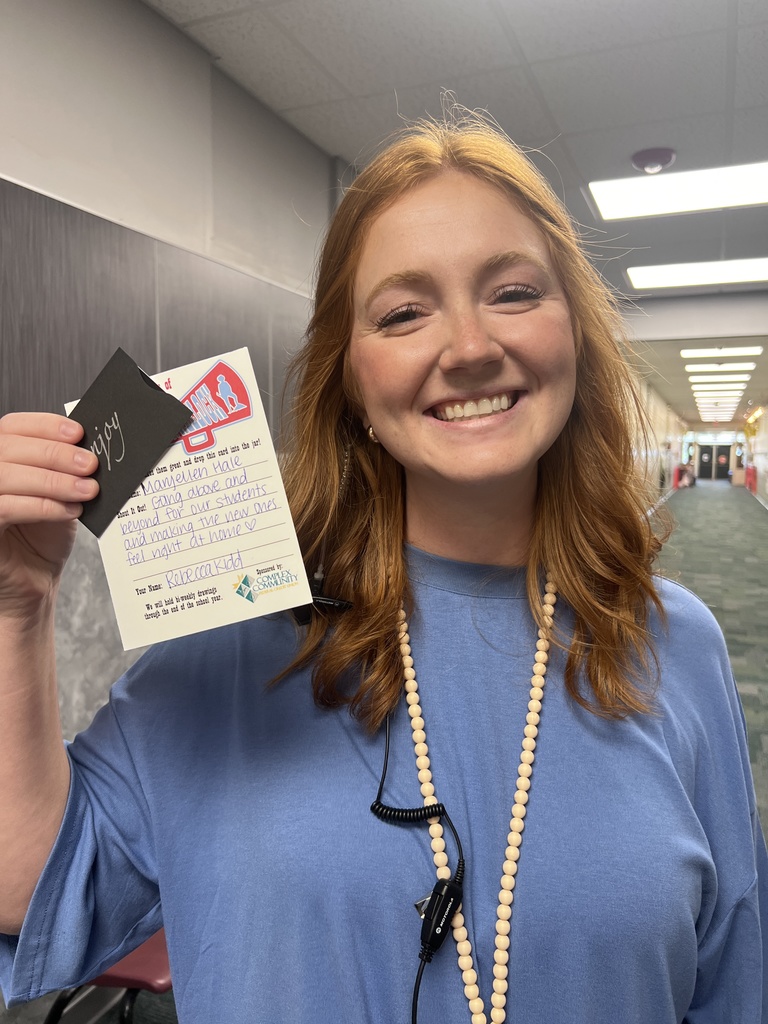 njoy
of
them great and drop this card into the jar!
Maryellen Hale
about It Out! Going above and
beyond for our students
and making the new ones
feel right at home ♡
Your Name: Rebecca Kidd
Sponsored by:
COMPLEX
COMMUNITY
We will hold bi-weekly drawings
through the end of the school year.
MOTOROLA